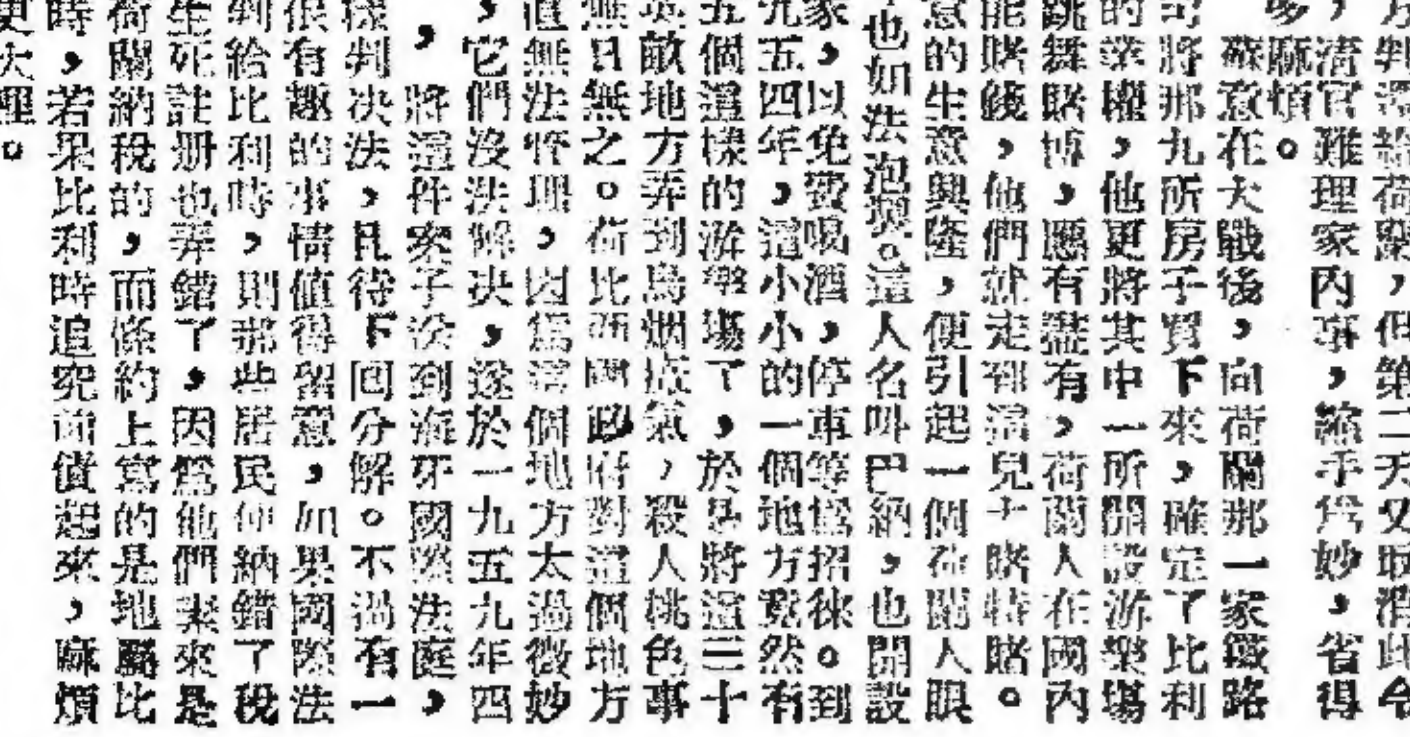 月判還給荷蘭，但第二天又取消此令
，清官難理家內事，縮手爲妙，省得
麻煩。
蘇意在大戰後，向荷蘭那一家鐵路
司將那九所房子買下來，確定了比利
的業權，他更將其中一所開設游樂場
跳舞賭博，應有盡有，荷蘭人在國內
能賭錢，他們就走到這兒大賭特賭。
意的生意興隆，便引起一個荷蘭人眼
也如法泡製。這人名叫巴納，也開設
家，以免費喝酒，停車等爲招徠。到
九五四年，這小小的一個地方竟然有
五個這樣的游樂場了，於是將這三十
英畝地方弄到烏烟瘴氣，殺人桃色事
無日無之。荷比兩國政府對這個地方
直無法管理，因爲這個地方太過微妙
，它們沒法解决，遂於一九五九年四
，將這件案子送到海牙國際法庭，
樣判决法，且待下回分解。不過有一
很有趣的事情值得留意，如果國際法
判給比利時，則那些居民便納錯了稅
生死註册也弄錯了，因爲他們素來是
荷蘭納稅的，而條約上寫的是地屬比
時，若果比利時追究前債起來，麻煩
更大哩。